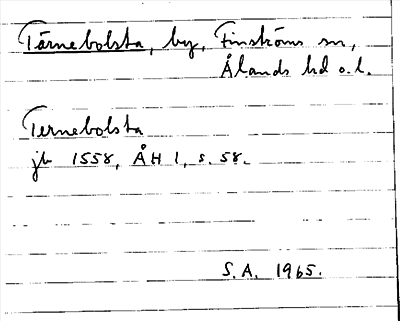 Tärnebolsta, by, Finströms sn,
Ålands hd o. l.
Ternebolsta
jb 1558, ÅH 1, s. 58.
S. A. 1965.